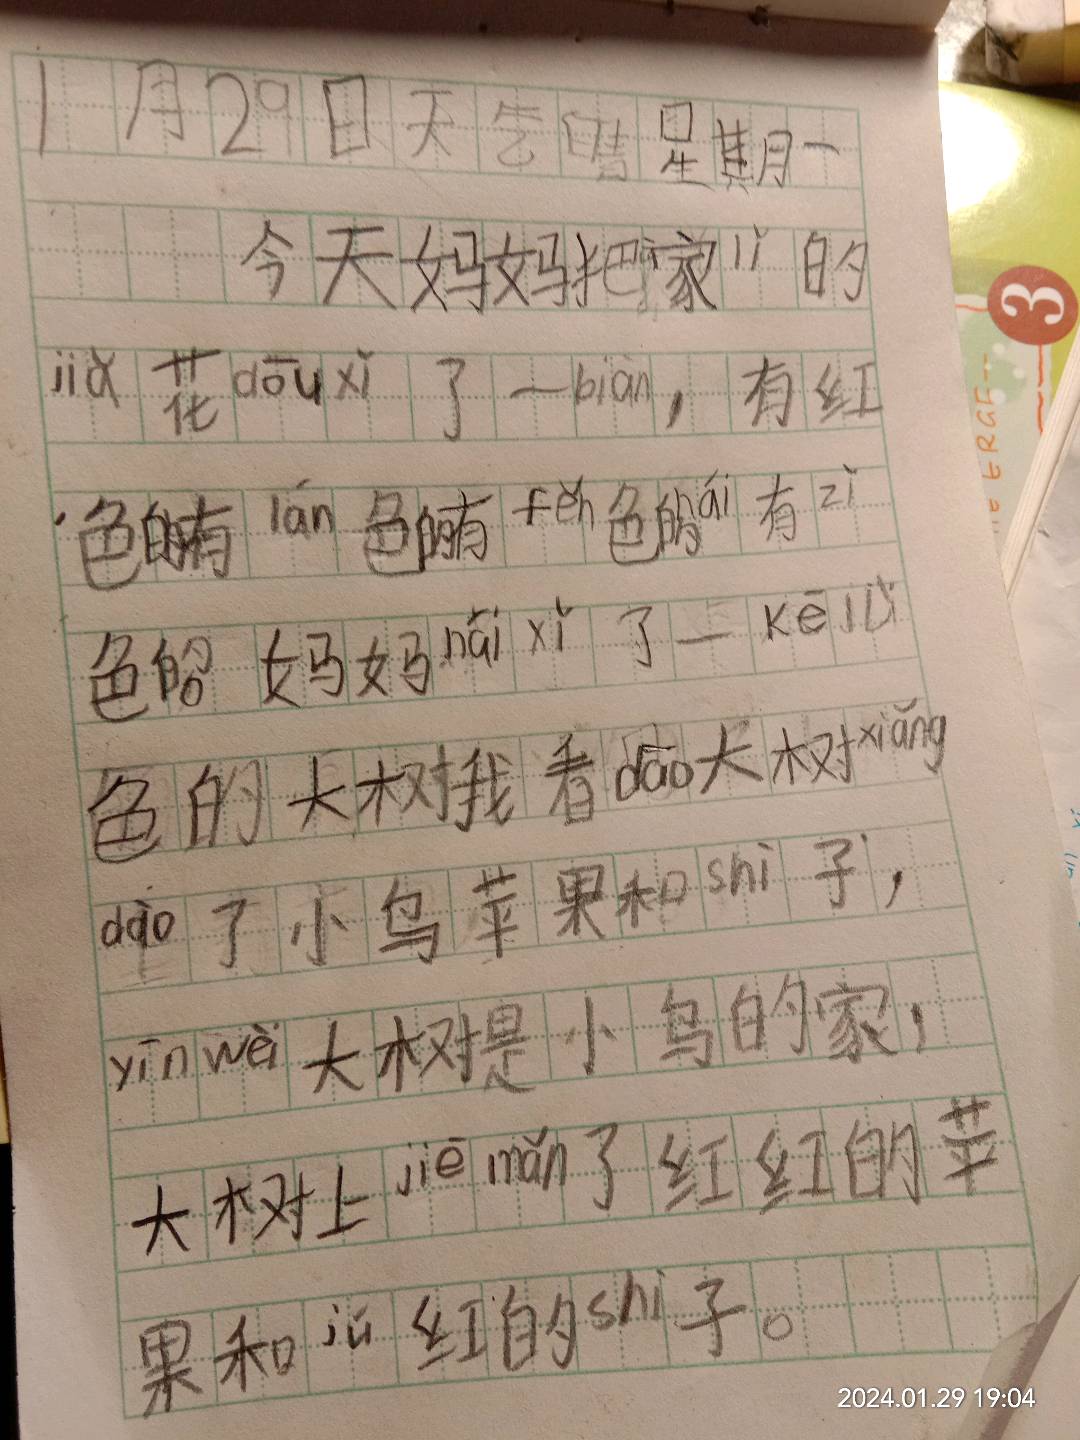 1月29日天气晴星期一
今天妈妈把家lǐ的
jiǎ花dōuxǐ了一biàn，有红
色的有lán色的有fěn色的ái有zǐ
色的。妈妈hái xǐ了一kē lǜ
色的大树我看dāo大树xiǎng
dào了小鸟苹果和shì子，
yīn wèi大树是小鸟的家，
大树上jiē mǎn了红红的苹
果和jú红的shì子。
3
2024.01.29 19:04